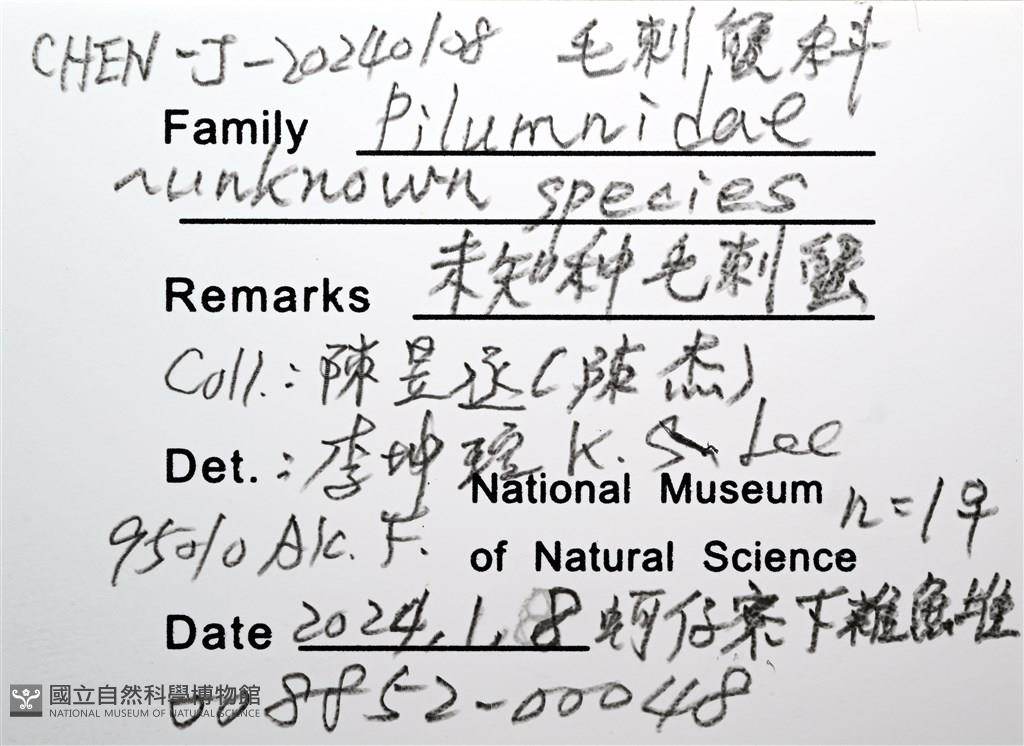 CHEN-J-20240108 毛刺蟹科
Family Pilumnidae
~unknown species
Remarks 未知种毛刺蟹
Coll.: 陳昱丞(陳杰)
Det.: 李坤瑄 K. S. Lee
National Museum n=1♀
95% Alc. F. of Natural Science
Date 2024.1.8 蚵仔寮下雜魚堆
008852-00048
國立自然科學博物館
NATIONAL MUSEUM OF NATURAL SCIENCE